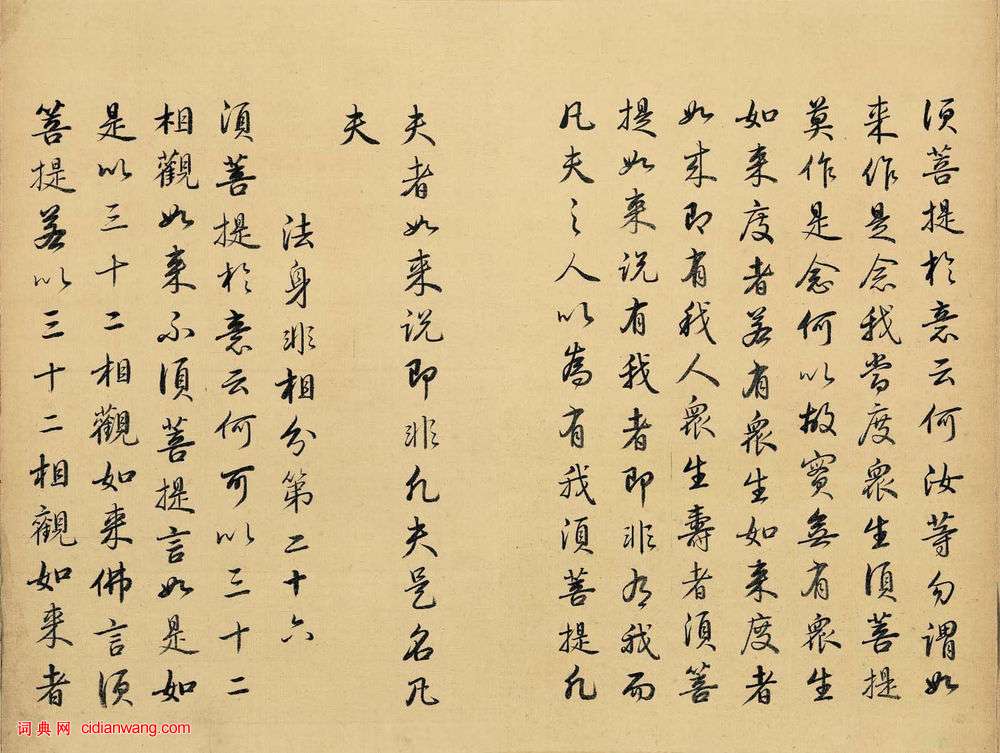 須菩提於意云何汝等勿謂如
来作是念我當度衆生須菩提
莫作是念何以故實無有衆生
如来度者若有衆生如来度者
如来即有我人衆生壽者須菩
提如来说有我者即非有我而
凡夫之人以為有我須菩提凡
夫者如来说即非凡夫是名凡
夫
法身非相分第二十六
須菩提於意云何可以三十二
相觀如来不須菩提言如是如
是以三十二相觀如来佛言須
菩提若以三十二相觀如来者
词典网 cidianwang.com